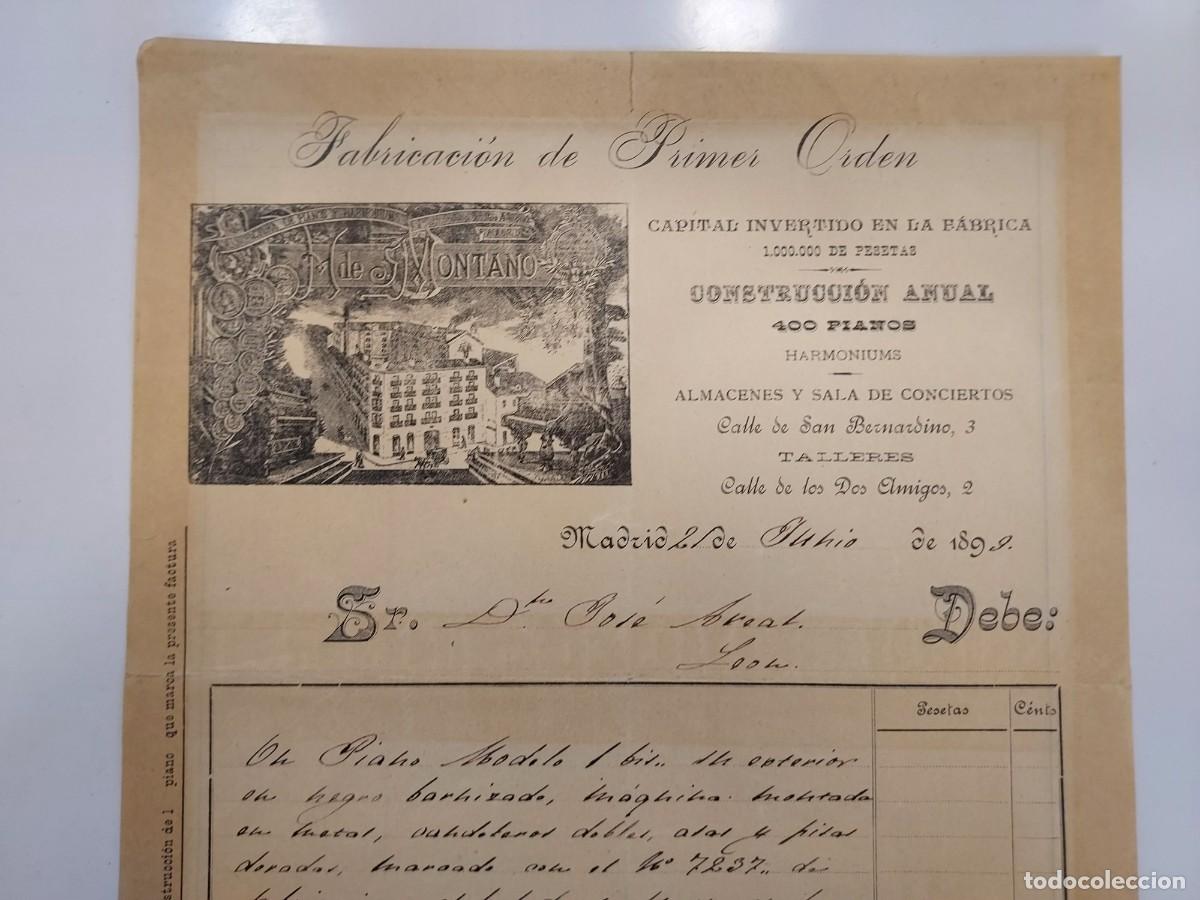 Fabricación de Primer Orden
M de Montano
CAPITAL INVERTIDO EN LA FÁBRICA
1.000.000 DE PESETAS
CONSTRUCCIÓN ANUAL
400 PIANOS
HARMONIUMS
ALMACENES Y SALA DE CONCIERTOS
Calle de San Bernardino, 3
TALLERES
Calle de los Dos Amigos, 2
Madrid 21 de Junio de 1899.
Sr. D. José Areal. Debe:
Leon.
Pesetas Cénts
Un Piano Modelo 1 bis. su exterior
en negro barnizado, máquina montada
en metal, candeleros dobles, asas y pisas
doradas, marcado con el Nº 7237 de
strucción del piano que marca la presente factura
todocoleccion